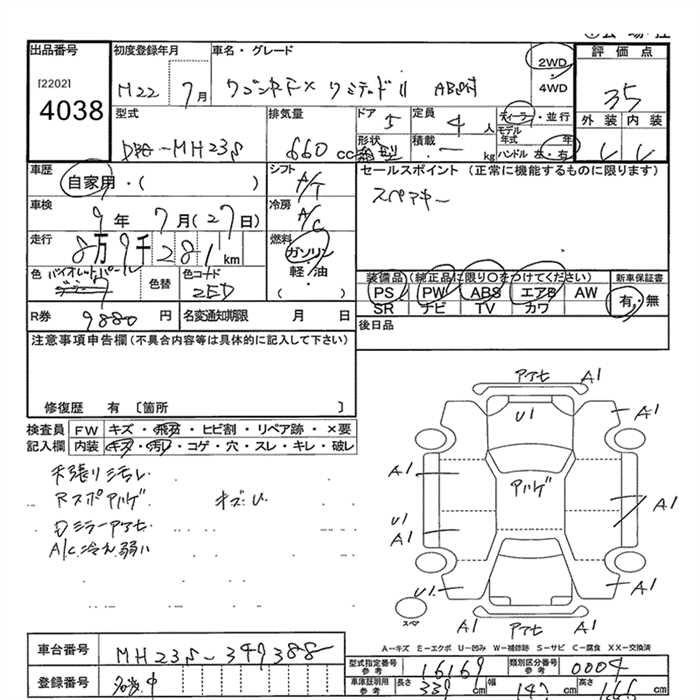 出品番号
[2202]
4038
初度登録年月
H22 7月
車名・グレード
ワゴンR FX リミテッドⅡ ABS付
2WD
4WD
評価点
35
外装 内装
型式
DBA-MH23S
排気量
660 cc
ドア 5
形状
定員 4 人
積載 ー kg
ディーラー・並行
モデル年式 年
ハンドル 左・右
車歴
自家用・( )
シフト
A/T
セールスポイント(正常に機能するものに限ります)
スペアキー
車検
9年 7月(27日)
冷房
A/C
走行
8万9千281km
燃料
ガソリン
軽・油
( )
色 バイオレットパール
色替
色コード
ZED
装備品(純正品に限り○をつけてください)
PS PW ABS エアB AW
SR ナビ TV カワ
新車保証書
有・無
R券 9880 円
名変通知期限 月 日
後日品
注意事項申告欄(不具合内容等は具体的に記入して下さい)
修復歴 有 〔箇所 〕
検査員記入欄
FW キズ・飛石・ヒビ割・リペア跡・×要
内装 キズ・汚レ・コゲ・穴・スレ・キレ・破レ
天張り汚レ
Rスポアハゲ キズ・U
Dミラーアセ
A/C冷え弱い
アアセ A1
U1
A1
A1
アハゲ
A1
U1
A1
U1
A1
スペア
アアセ A1
A-キズ E-エクボ U-凹み W-補修跡 S-サビ C-腐食 XX-交換済
車台番号
MH23S-349388
登録番号
型式指定番号 参考
16169
類別区分番号 参考
0004
車庫証明用 参考
長さ 339 cm
幅 147 cm
高さ 166 cm